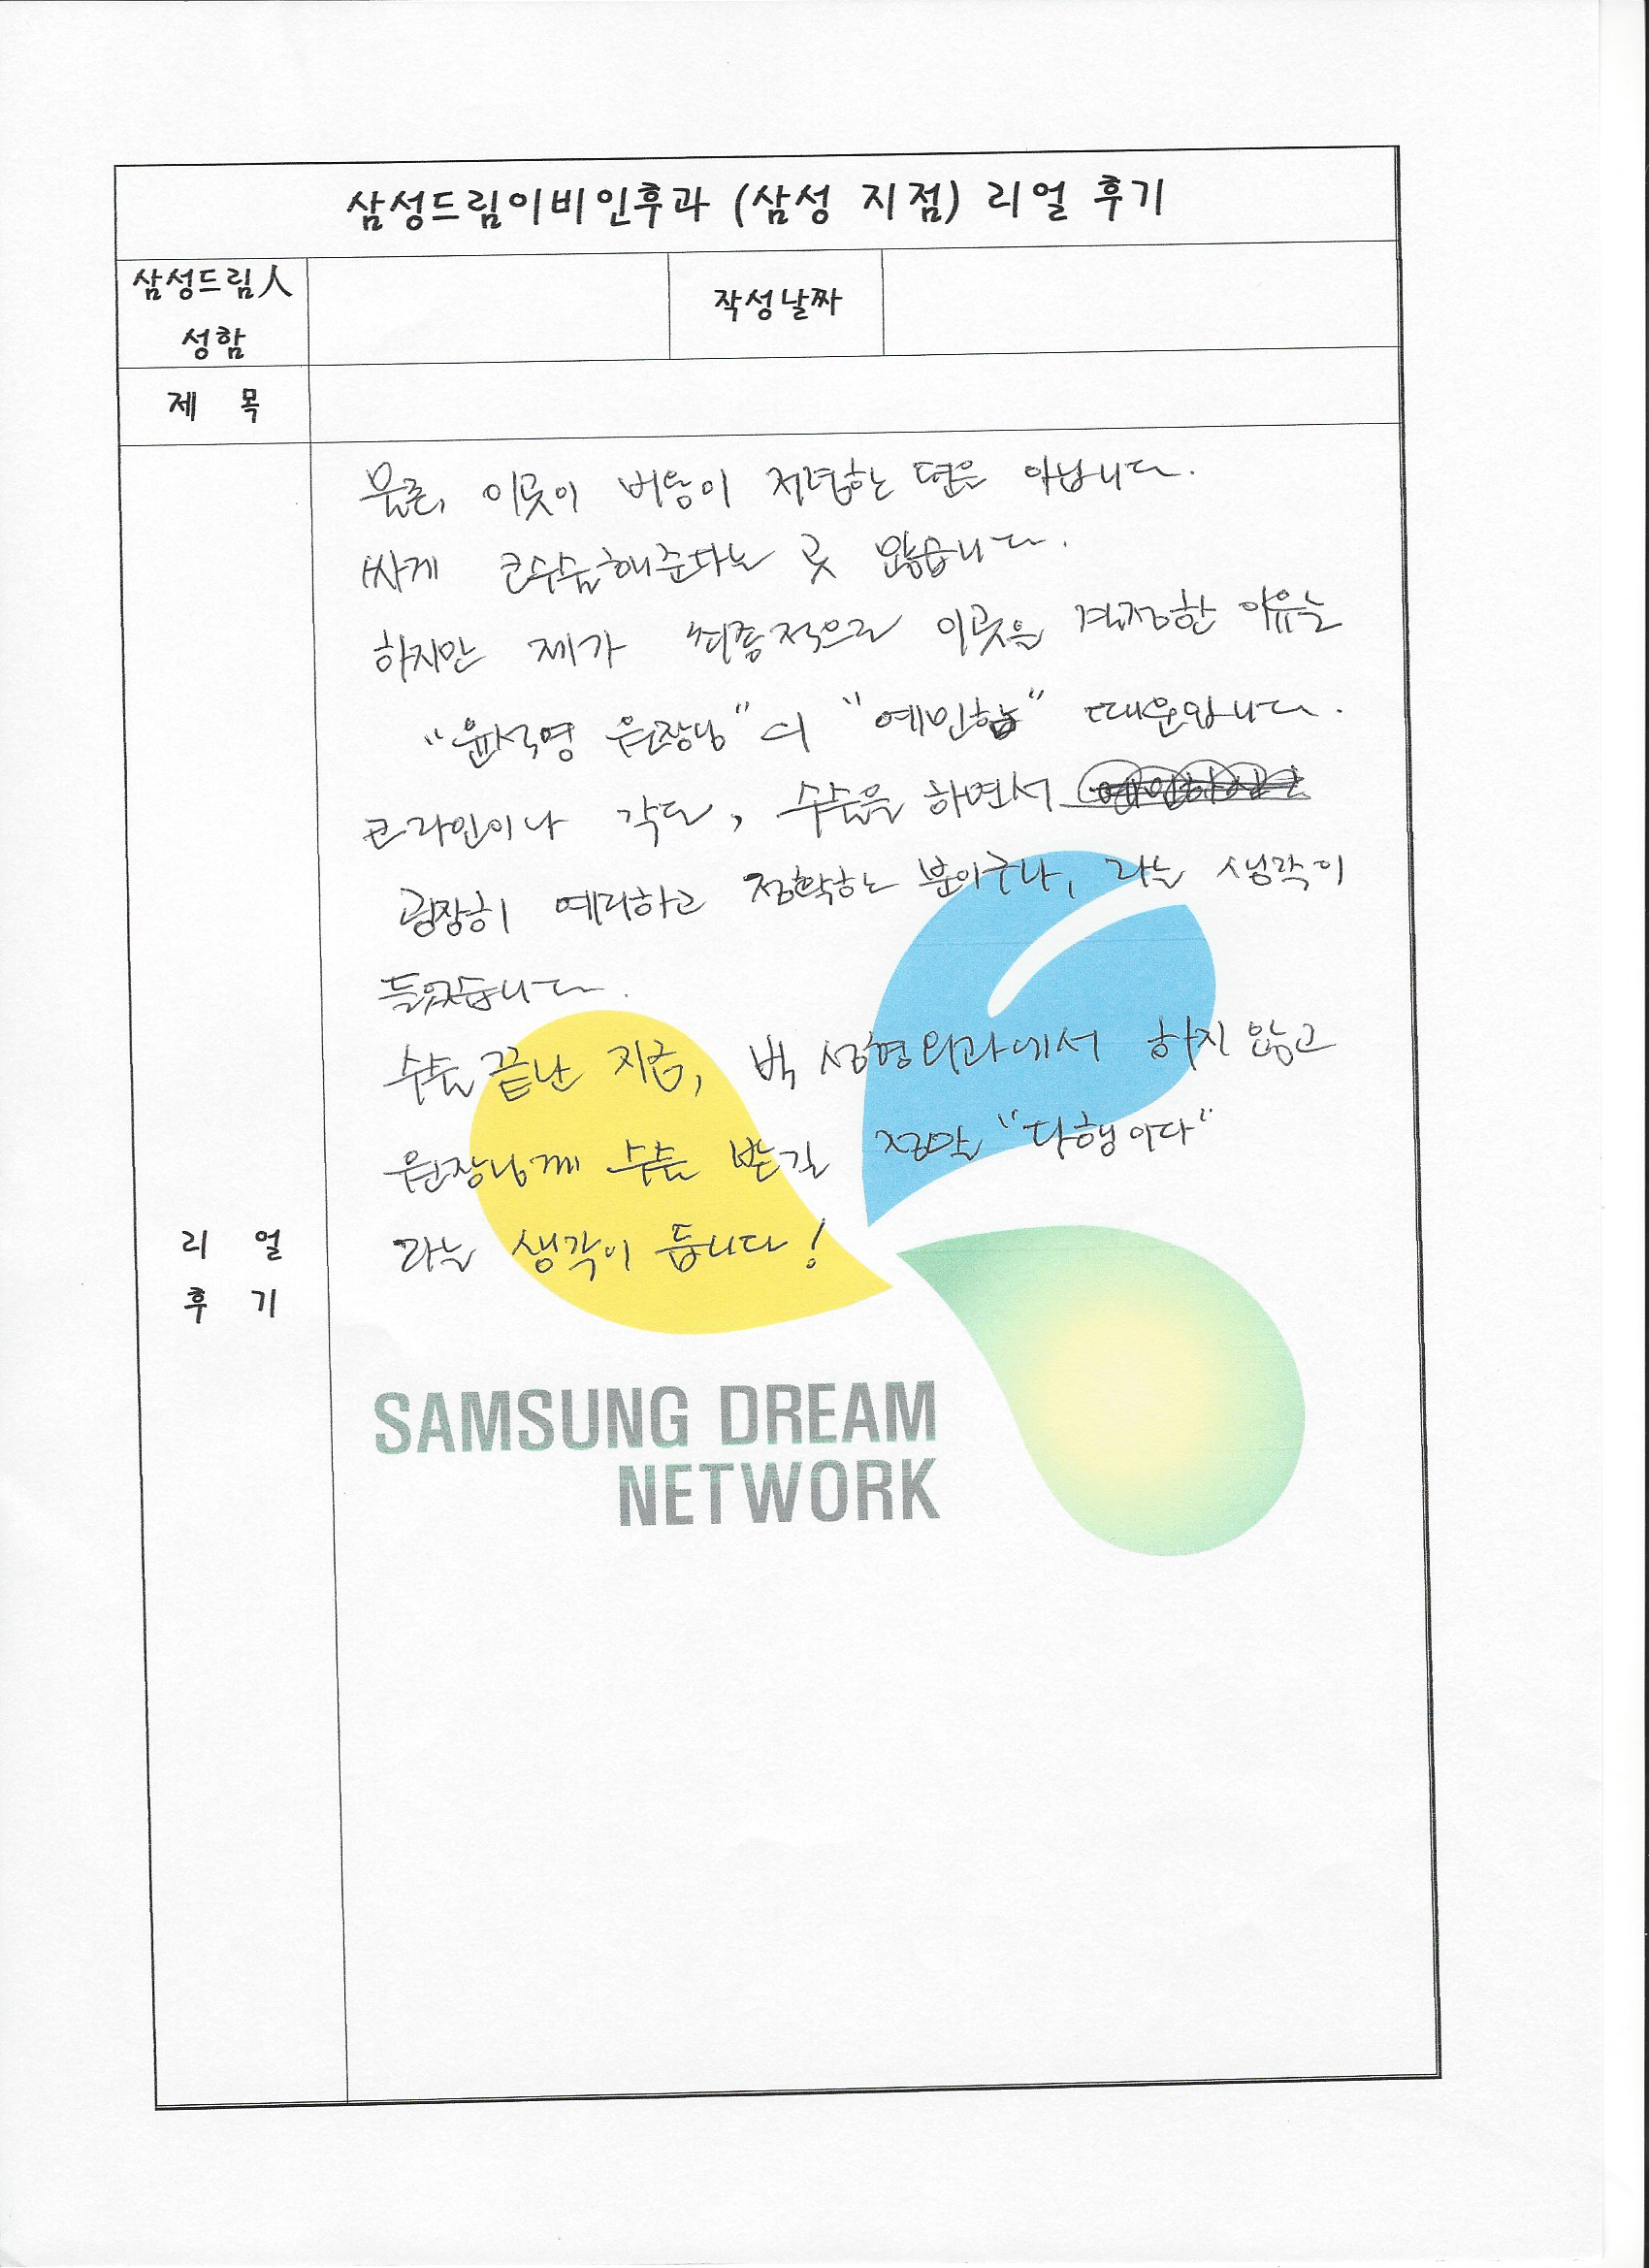 삼성드림이비인후과 (삼성 지점) 리얼 후기
삼성드림人
성함
작성날짜
제 목
물론, 이곳이 비용이 저렴하는 편은 아닙니다.
싸게 코수술해준다는 곳 많습니다.
하지만 제가 최종적으로 이곳을 결정한 이유는
"윤석영 원장님"의 "예민함" 때문입니다.
코라인이나 각도, 수술을 하면서
굉장히 예리하고 정확하는 분이구나, 라는 생각이
들었습니다.
수술 끝난 지금, 빅 성형외과에서 하지 않고
원장님께 수술 받길 정말 "다행이다"
라는 생각이 듭니다!
리 얼
후 기
SAMSUNG DREAM
NETWORK